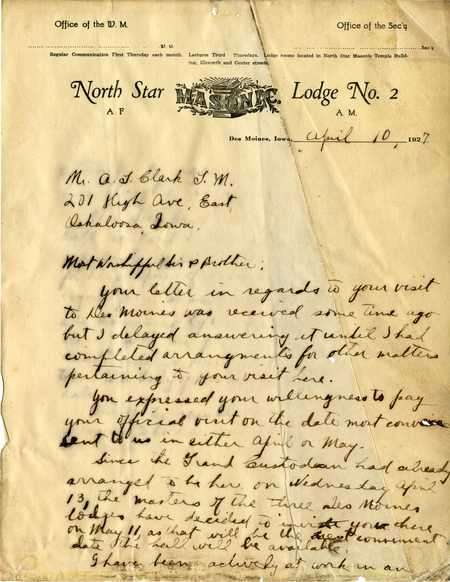 Office of the W. M.
Office of the Sec'y
W. M.
Sec'y
Regular Communication First Thursday each month. Lectures Third Thursdays. Lodge rooms located in North Star Masonic Temple Build-
ing, Eleventh and Center streets
North Star MASONIC Lodge No. 2
A. F. A. M.
Des Moines, Iowa, April 10, 1927
Mr. A. L. Clark G. M.
201 High Ave, East
Oskaloosa, Iowa.
Most Worshipful Sir & Brother;
Your letter in regards to your visit
to Des Moines was received some time ago
but I delayed answering it until I had
completed arrangments for other matters
pertaining to your visit here.
You expressed your willingness to pay
your official visit on the date most
to us in either April or May.
Since the Grand Custodean had already
arranged to be here on Wednesday April
13, the masters of the three Des Moines
lodges have decided to you here
on May 11, as that will be the convinient
date the hall will be available.
I have been actively at work in an